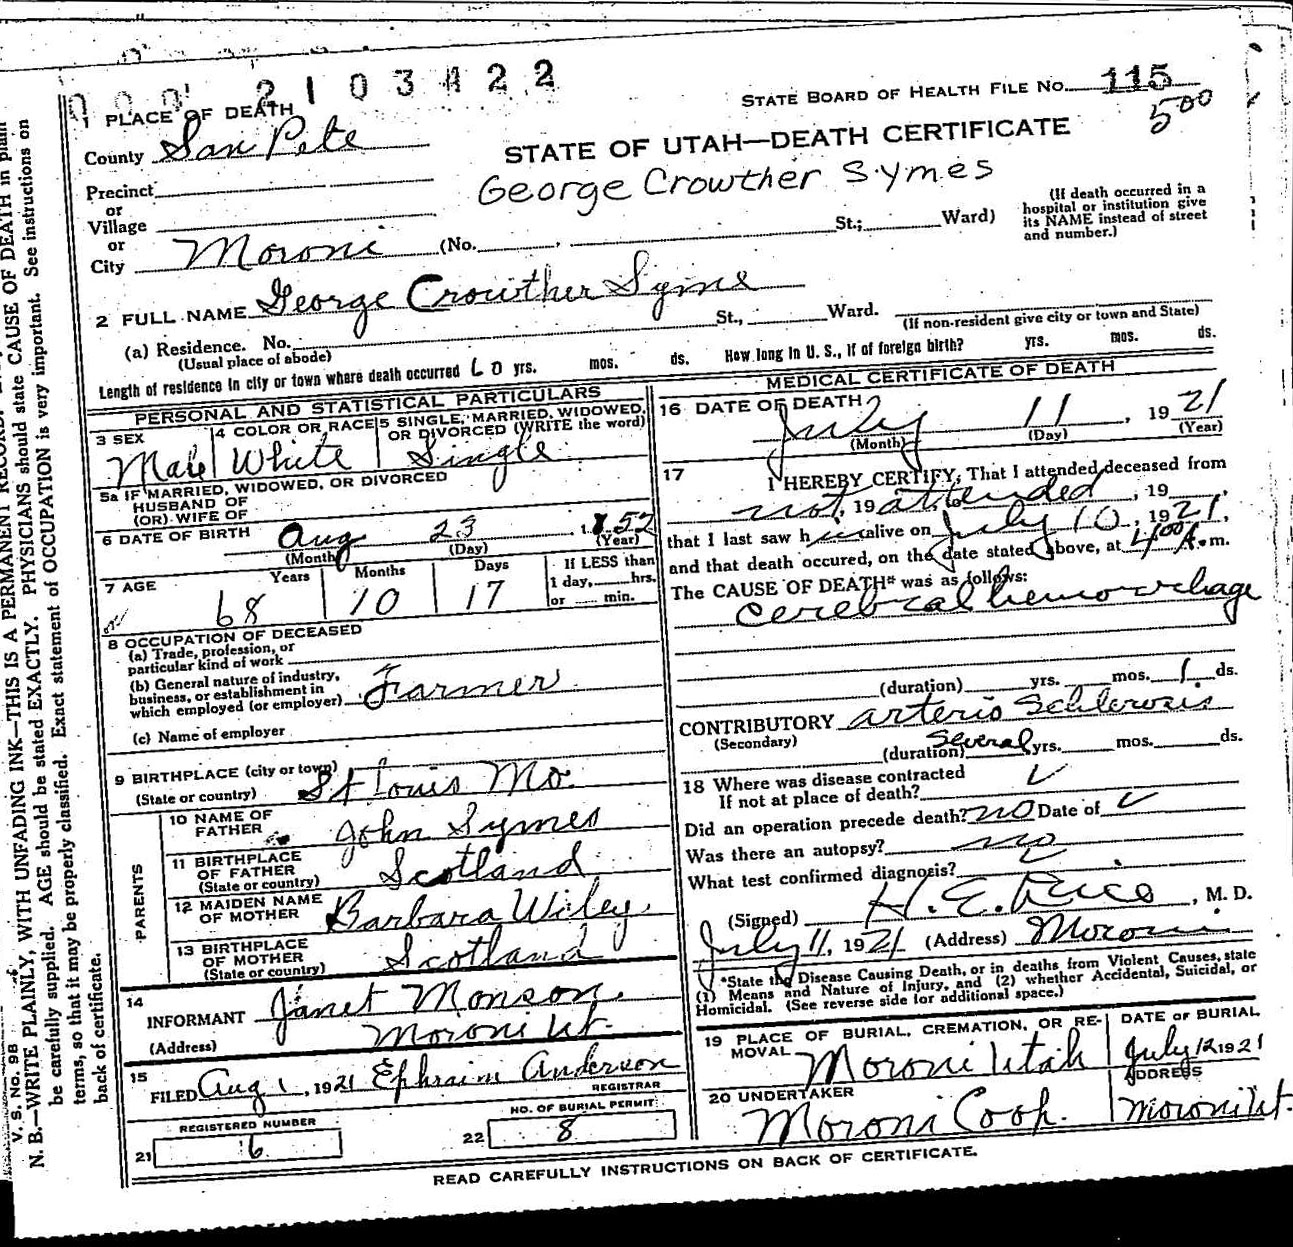 2103422
STATE BOARD OF HEALTH FILE NO. 115
500
1 PLACE OF DEATH
County San Pete
STATE OF UTAH—DEATH CERTIFICATE
George Crowther Symes
Precinct
or
Village
or
City Moroni (No. St.; Ward)
(If death occurred in a
hospital or institution give
its NAME instead of street
and number.)
2 FULL NAME George Crowther Syme
(a) Residence. No. St., Ward.
(Usual place of abode)
(If non-resident give city or town and State)
Length of residence in city or town where death occurred 60 yrs. mos. ds. How long in U. S., if of foreign birth? yrs. mos. ds.
PERSONAL AND STATISTICAL PARTICULARS
3 SEX
Male
4 COLOR OR RACE
White
5 SINGLE, MARRIED, WIDOWED,
OR DIVORCED (WRITE the word)
Single
5a IF MARRIED, WIDOWED, OR DIVORCED
HUSBAND OF
(OR) WIFE OF
6 DATE OF BIRTH Aug 23 1852
(Month) (Day) (Year)
7 AGE
Years Months Days
68 10 17
If LESS than
1 day, hrs.
or min.
8 OCCUPATION OF DECEASED
(a) Trade, profession, or
particular kind of work
(b) General nature of industry,
business, or establishment in
which employed (or employer) Farmer
(c) Name of employer
9 BIRTHPLACE (city or town)
(State or country) St Louis Mo.
PARENTS
10 NAME OF
FATHER John Symes
11 BIRTHPLACE
OF FATHER
(State or country) Scotland
12 MAIDEN NAME
OF MOTHER Barbara Wiley
13 BIRTHPLACE
OF MOTHER
(State or country) Scotland
14
INFORMANT Janet Monson
(Address) Moroni Ut.
15
FILED Aug 1, 1921 Ephraim Anderson
REGISTRAR
REGISTERED NUMBER
21 6
NO. OF BURIAL PERMIT
22 8
MEDICAL CERTIFICATE OF DEATH
16 DATE OF DEATH
July 11, 1921
(Month) (Day) (Year)
17 I HEREBY CERTIFY, That I attended deceased from
not, 19 attended, 19
that I last saw him alive on July 10, 1921,
and that death occured, on the date stated above, at 4:00 A.m.
The CAUSE OF DEATH* was as follows:
cerebral hemorrhage
(duration) yrs. mos. 1 ds.
CONTRIBUTORY arterio Schlerosis
(Secondary)
(duration) several yrs. mos. ds.
18 Where was disease contracted
If not at place of death?
Did an operation precede death? no Date of
Was there an autopsy? no
What test confirmed diagnosis?
(Signed) H. E. Rice, M. D.
July 11, 1921 (Address) Moroni
*State the Disease Causing Death, or in deaths from Violent Causes, state
(1) Means and Nature of Injury, and (2) whether Accidental, Suicidal, or
Homicidal. (See reverse side for additional space.)
19 PLACE OF BURIAL, CREMATION, OR RE-
MOVAL Moroni Utah
DATE OF BURIAL
July 12 1921
20 UNDERTAKER
Moroni Coop.
ADDRESS
Moroni Ut.
READ CAREFULLY INSTRUCTIONS ON BACK OF CERTIFICATE.
V. S. No. 98
N. B.—WRITE PLAINLY, WITH UNFADING INK—THIS IS A PERMANENT RECORD.
be carefully supplied. AGE should be stated EXACTLY. PHYSICIANS should state CAUSE OF DEATH in plain
terms, so that it may be properly classified. Exact statement of OCCUPATION is very important. See instructions on
back of certificate.